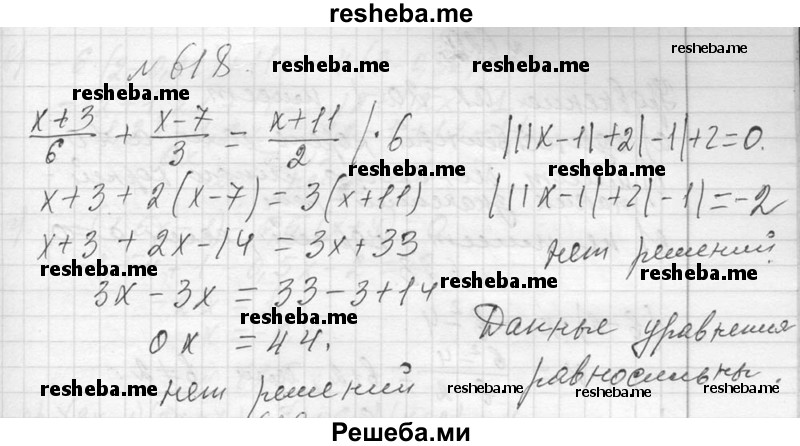 resheba.me
№618.
resheba.me resheba.me resheba.me
(x+3)/6 + (x-7)/3 = (x+11)/2 /·6
|||x-1|+2|-1|+2=0.
resheba.me resheba.me
x+3+2(x-7)=3(x+11)
|||x-1|+2|-1|=-2
x+3+2x-14=3x+33
нет решений.
resheba.me resheba.me resheba.me
3x-3x=33-3+14
0x=44.
resheba.me
Данные уравнения
нет решений
равносильны.
resheba.me resheba.me resheba.me resheba.me
Решеба.ми